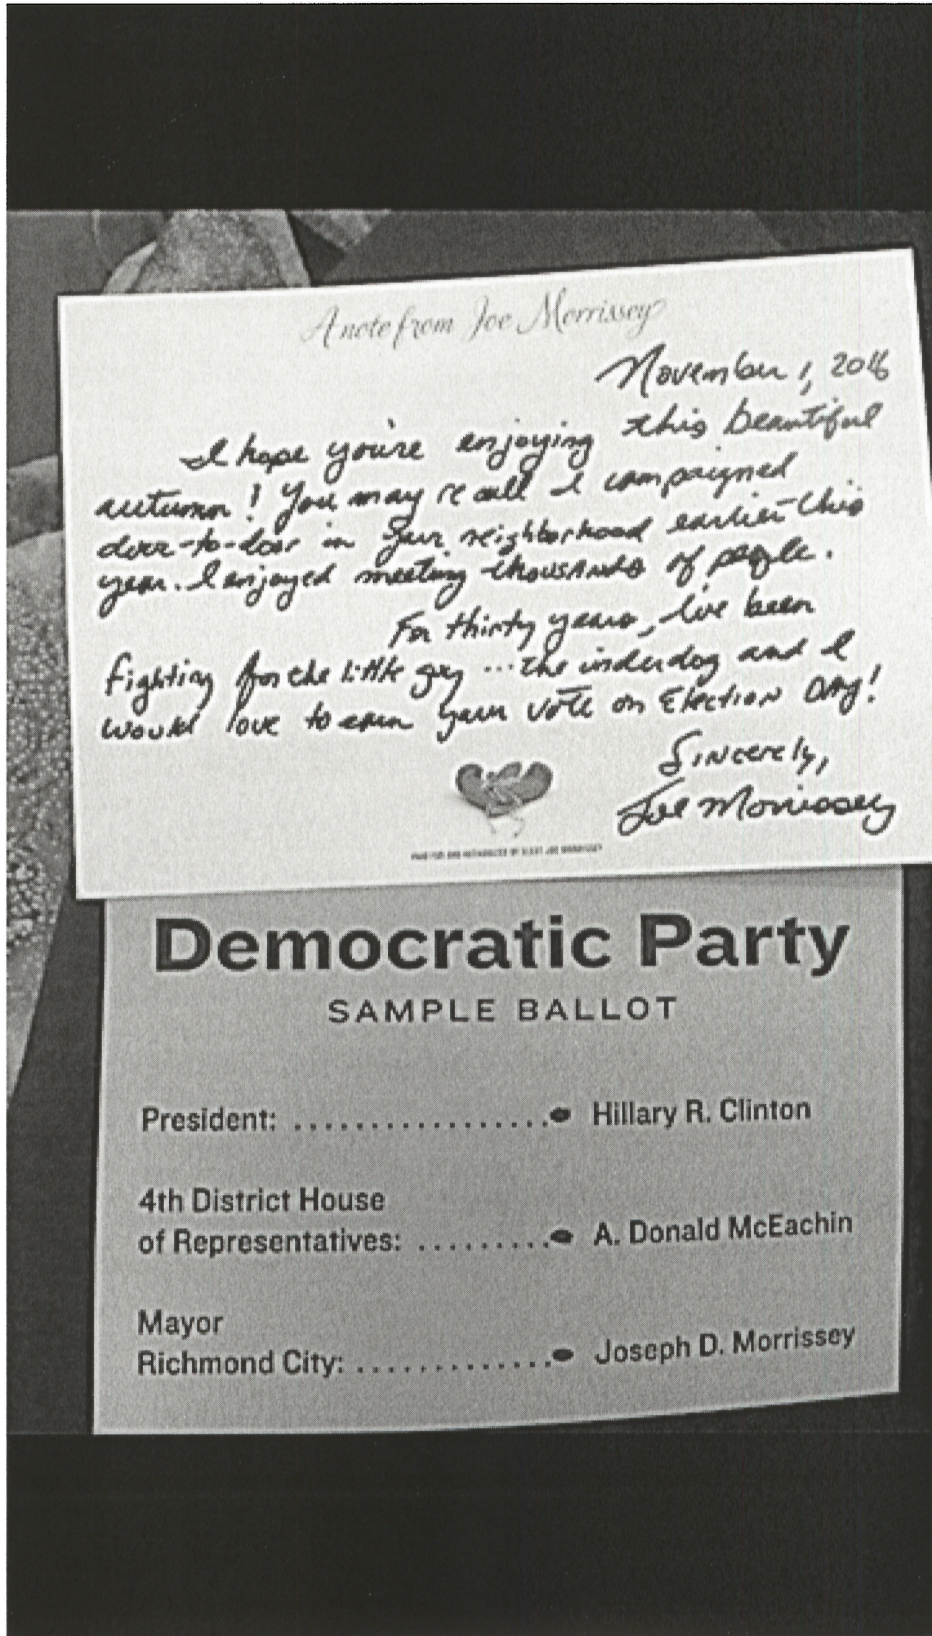 A note from Joe Morrissey
November 1, 2016
I hope you're enjoying this beautiful
autumn! You may recall I campaigned
door-to-door in your neighborhood earlier this
year. I enjoyed meeting thousands of people.
For thirty years, I've been
fighting for the little guy ... the underdog and I
would love to earn your vote on Election Day!
Sincerely,
Joe Morrissey
PAID FOR AND AUTHORIZED BY ELECT JOE MORRISSEY
Democratic Party
SAMPLE BALLOT
President: .................. Hillary R. Clinton
4th District House
of Representatives: ......... A. Donald McEachin
Mayor
Richmond City: ............. Joseph D. Morrissey